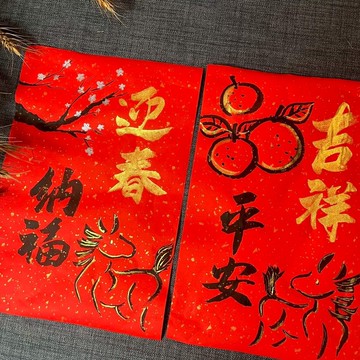 迎春
納福
吉祥
平安